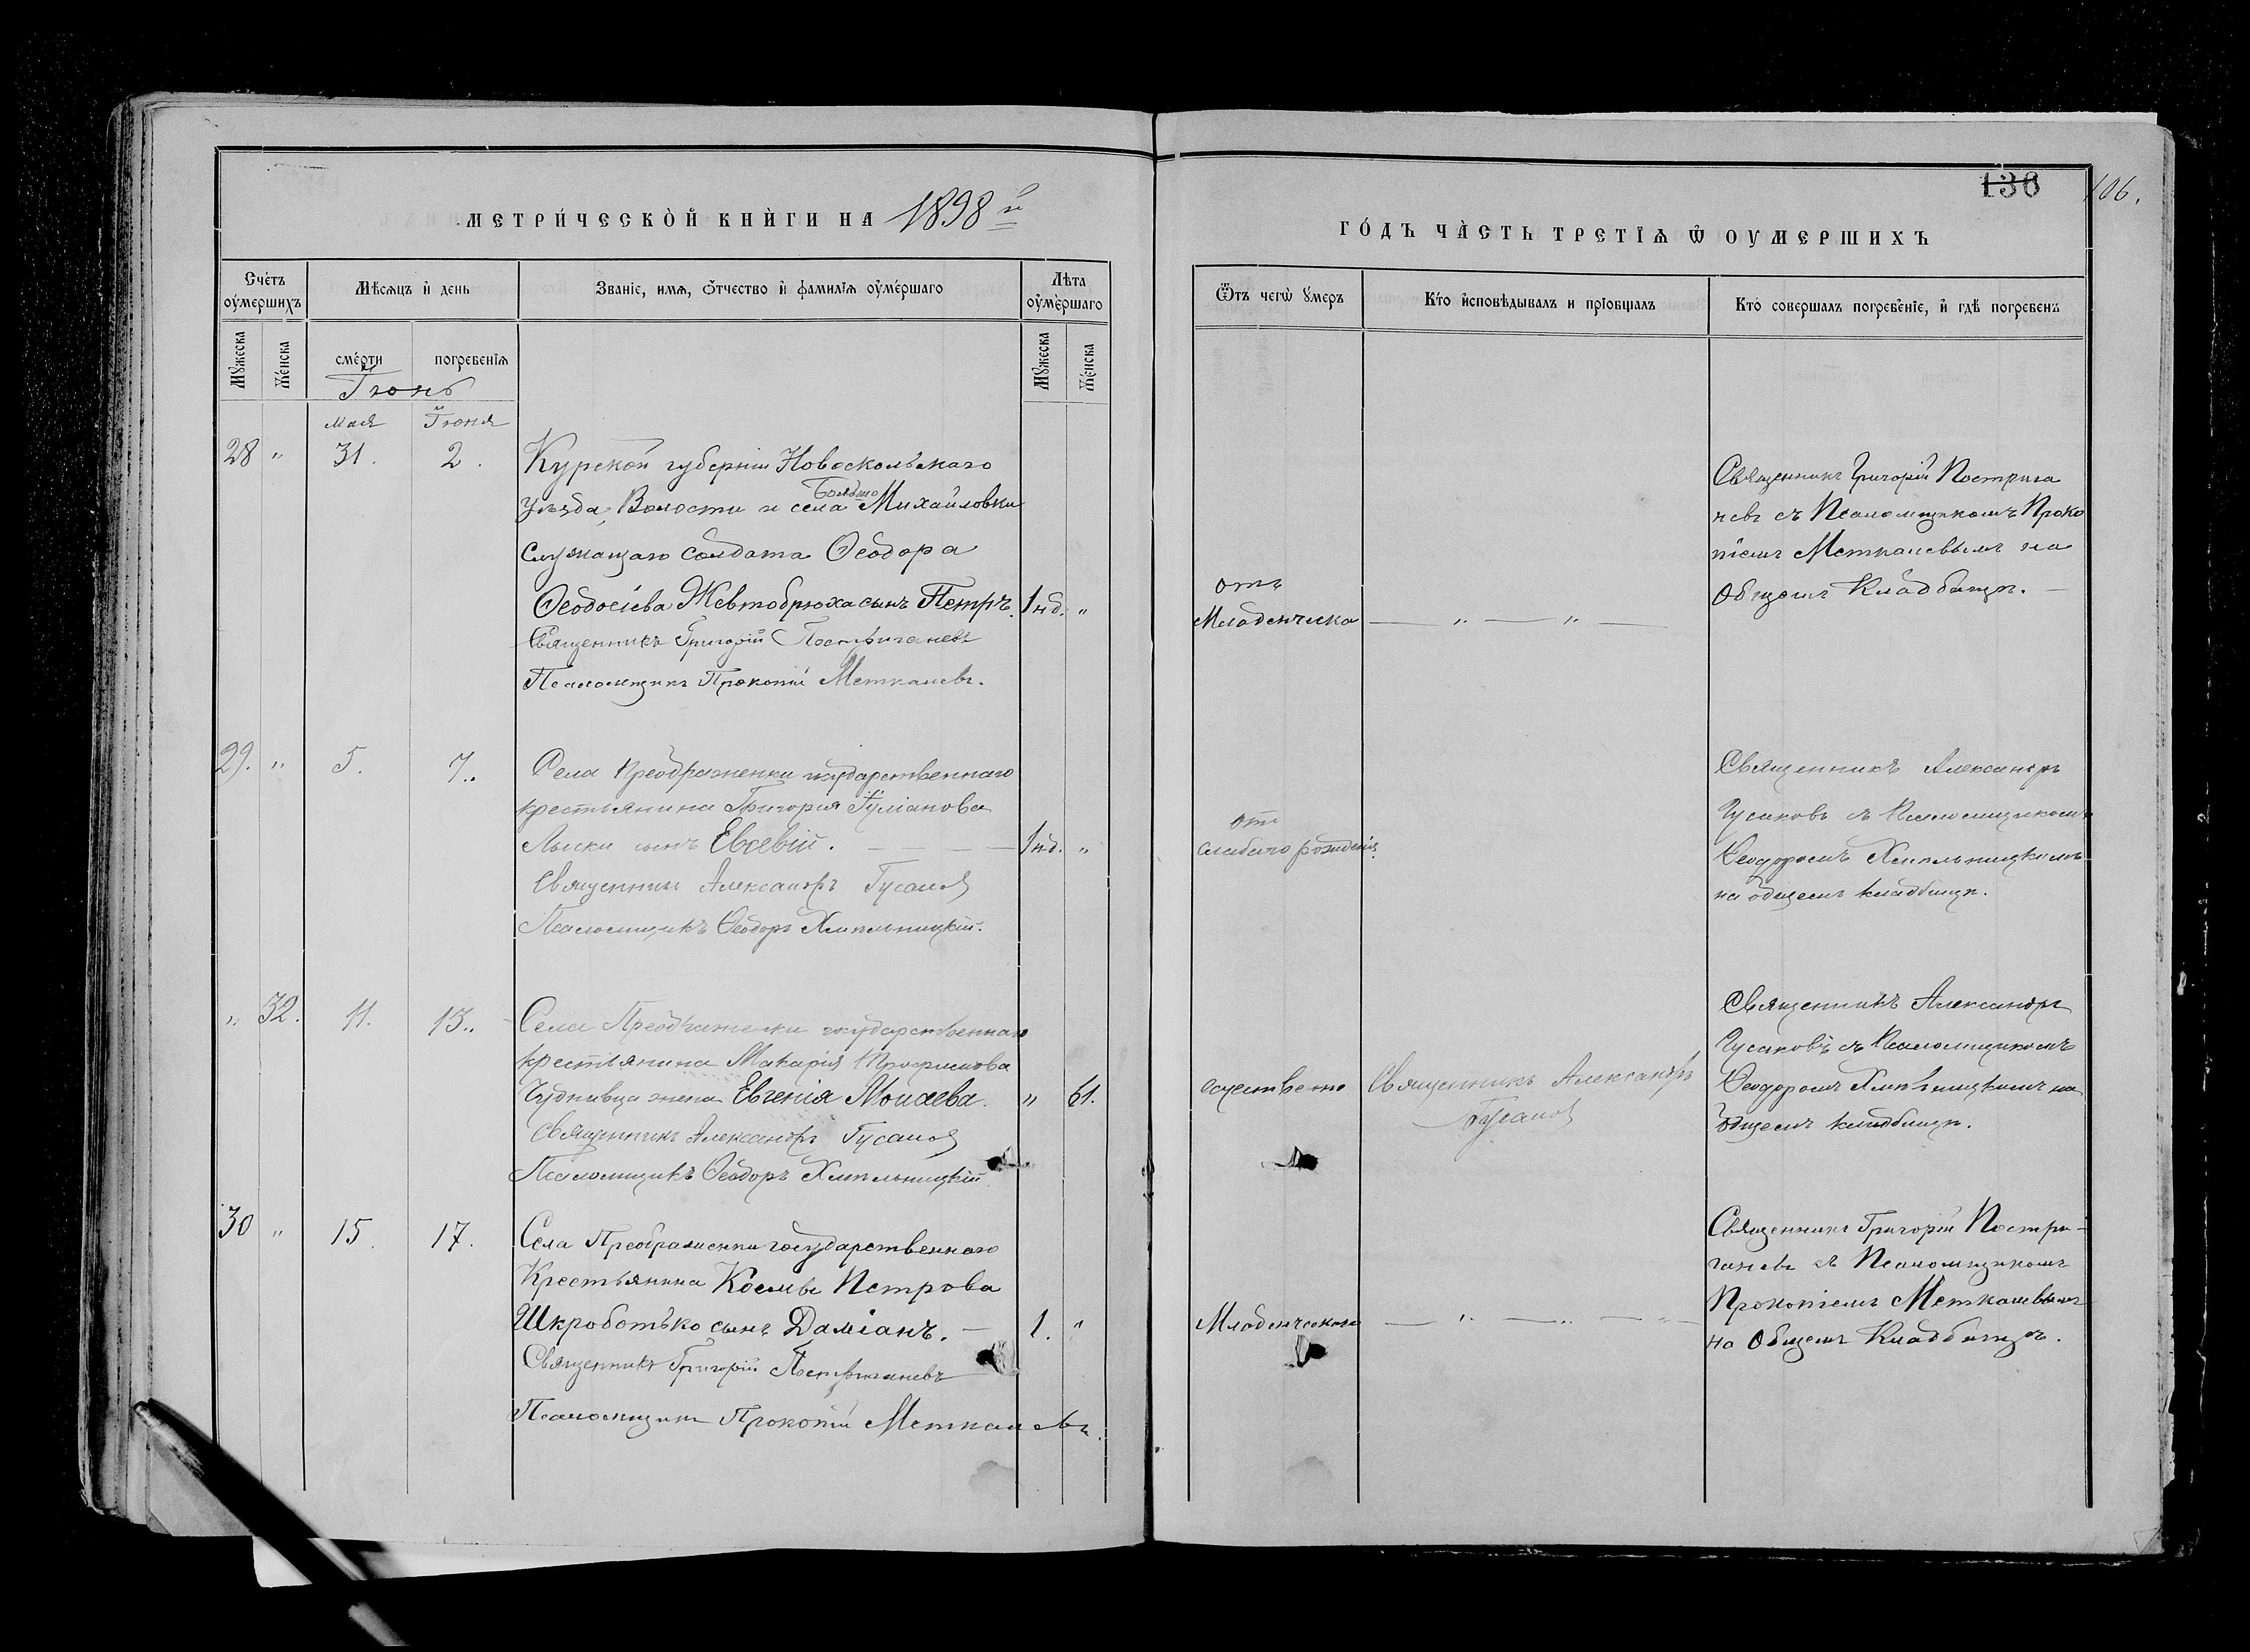 МЕТРИ́ЧЕСКОЙ КНИ́ГИ НА 1898 й
Счетъ оумершихъ
Мѣсяцъ и день
Званіе, имя, ѿчество и фамилія оумершаго
Лѣта оумершаго
Мужеска
Женска
смерти
погребенія
Мужеска
Женска
Іюнь
мая Іюня
28 " 31. 2. Курской губерніи Новоскольскаго
Больше
уѣзда, Волости и села Михайловки
служащаго солдата Ѳеодора
Ѳеодосіева Жевтобрюха сынъ Петръ. 1 нд. "
Священникъ Григорій Постригачевъ
Псаломщикъ Прокопій
29. " 5. 7. Села Преображенки государственнаго
крестьянина Григорія
Лыски сынъ Евсевій. 1 нд. "
Священникъ Александръ Гусаковъ
Псаломщикъ Ѳеодоръ Хмельницкій.
" 32. 11. 13. Села Преображенки государственнаго
крестьянина Макарія Трофимова
жена Евгенія Моисеева. " 61.
Священникъ Александръ Гусаковъ
Псаломщикъ Ѳеодоръ Хмельницкій
30 " 15. 17. Села Преображенки государственнаго
Крестьянина Космы Петрова
Шкроботько сынъ Даміанъ. — 1. "
Священникъ Григорій Постригачевъ
Псаломщикъ Прокопій
136 106.
ГО́ДЪ ЧА́СТЬ ТРЕТІЯ Ѿ ОУМЕРШИХЪ
Ѿтъ чегѡ умеръ
Кто исповѣдывалъ и пріобщалъ
Кто совершалъ погребеніе, и гдѣ погребенъ
Священникъ Григорій Пострига
чевъ съ Псаломщикомъ Проко
піемъ на
Общемъ Кладбищѣ. —
отъ
Младенческа — " — " —
Священникъ Александръ
Гусаковъ съ Псаломщикомъ
Ѳеодоромъ Хмельницкимъ
на общемъ кладбищѣ.
отъ
слабаго рожденія
Священникъ Александръ
Гусаковъ съ Псаломщикомъ
Ѳеодоромъ Хмельницкимъ на
общемъ кладбищѣ.
естественно
Священникъ Александръ
Гусаковъ
Священникъ Григорій Постри-
гачевъ съ Псаломщикомъ
Прокопіемъ
на Общемъ Кладбищѣ.
Младенческой — " — " — " —